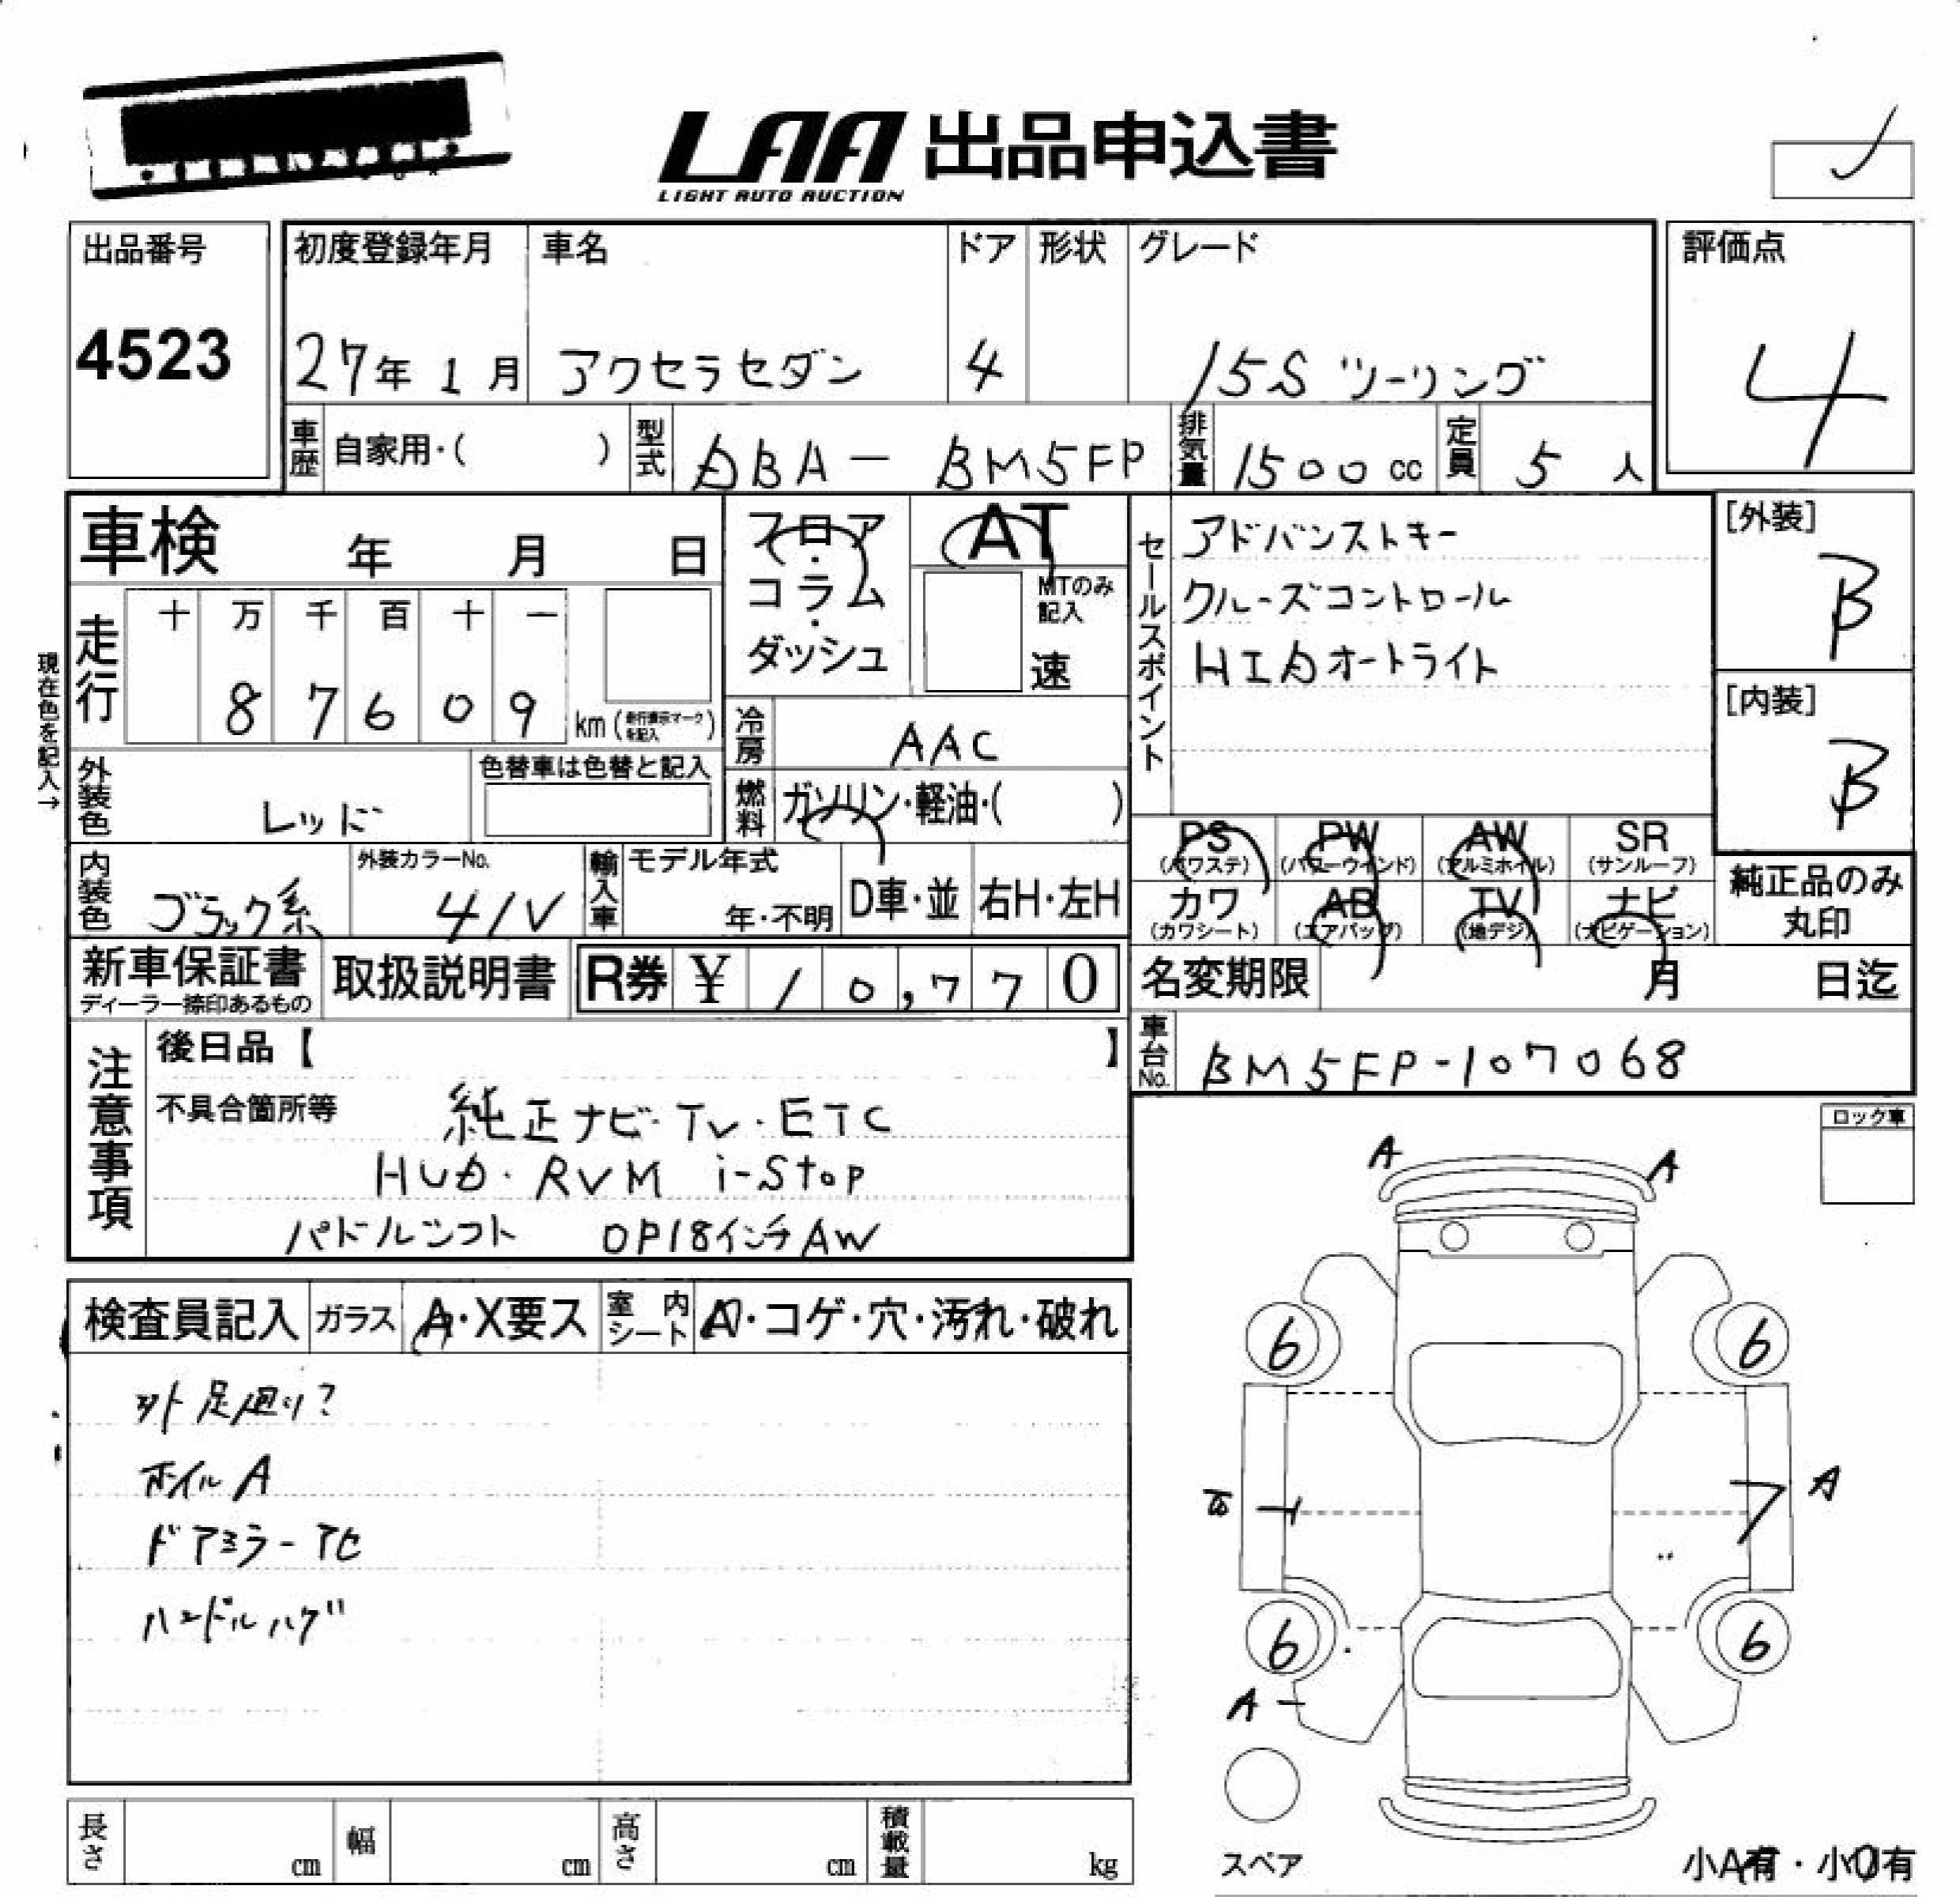 LAA 出品申込書
LIGHT AUTO AUCTION
出品番号
4523
初度登録年月 車名 ドア 形状 グレード
27年 1月 アクセラセダン 4 15S ツーリング
評価点
4
車歴 自家用・( ) 型式 DBA-BM5FP 排気量 1500cc 定員 5人
車検 年 月 日
フロア・コラム・ダッシュ
AT
MTのみ記入
速
セールスポイント
アドバンストキー
クルーズコントロール
HIDオートライト
[外装]
B
[内装]
B
現在色を記入→
走行 十 万 千 百 十 一
8 7 6 0 9 km
冷房 AAC
燃料 ガソリン・軽油・( )
外装色 レッド 色替車は色替と記入
内装色 ブラック系 外装カラーNo. 41V
輸入車 モデル年式 年・不明 D車・並 右H・左H
PS (パワステ) PW (パワーウインド) AW (アルミホイル) SR (サンルーフ)
カワ (カワシート) AB (エアバッグ) TV (地デジ) ナビ (ナビゲーション)
純正品のみ丸印
新車保証書 取扱説明書 R券 ¥ 10,770
ディーラー捺印あるもの
名変期限 月 日迄
車台No. BM5FP-107068
注意事項
後日品【 】
不具合箇所等 純正ナビ・TV・ETC
HUD・RVM i-Stop
パドルシフト OP18インチAW
ロック車
検査員記入 ガラス A・X要ス 室内シート ・コゲ・穴・汚れ・破れ
外 足廻り?
ホイルA
ドアミラーアセ
ハンドルハゲ
A A
6 6
A
6 6
A
スペア
小A有・小U有
長さ cm 幅 cm 高さ cm 積載量 kg